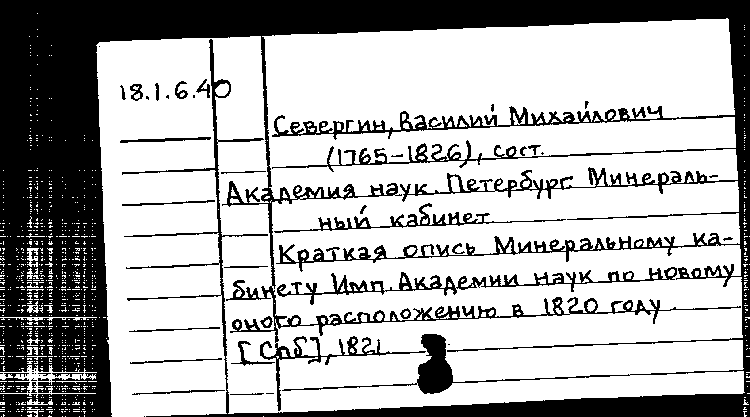 18.1.6.40
Севергин, Василий Михайлович
(1765-1826), сост.
Академия наук. Петербург. Минераль-
ный кабинет.
Краткая опись Минеральному ка-
бинету Имп. Академии наук по новому
оного расположению в 1820 году.
[Спб], 1821.